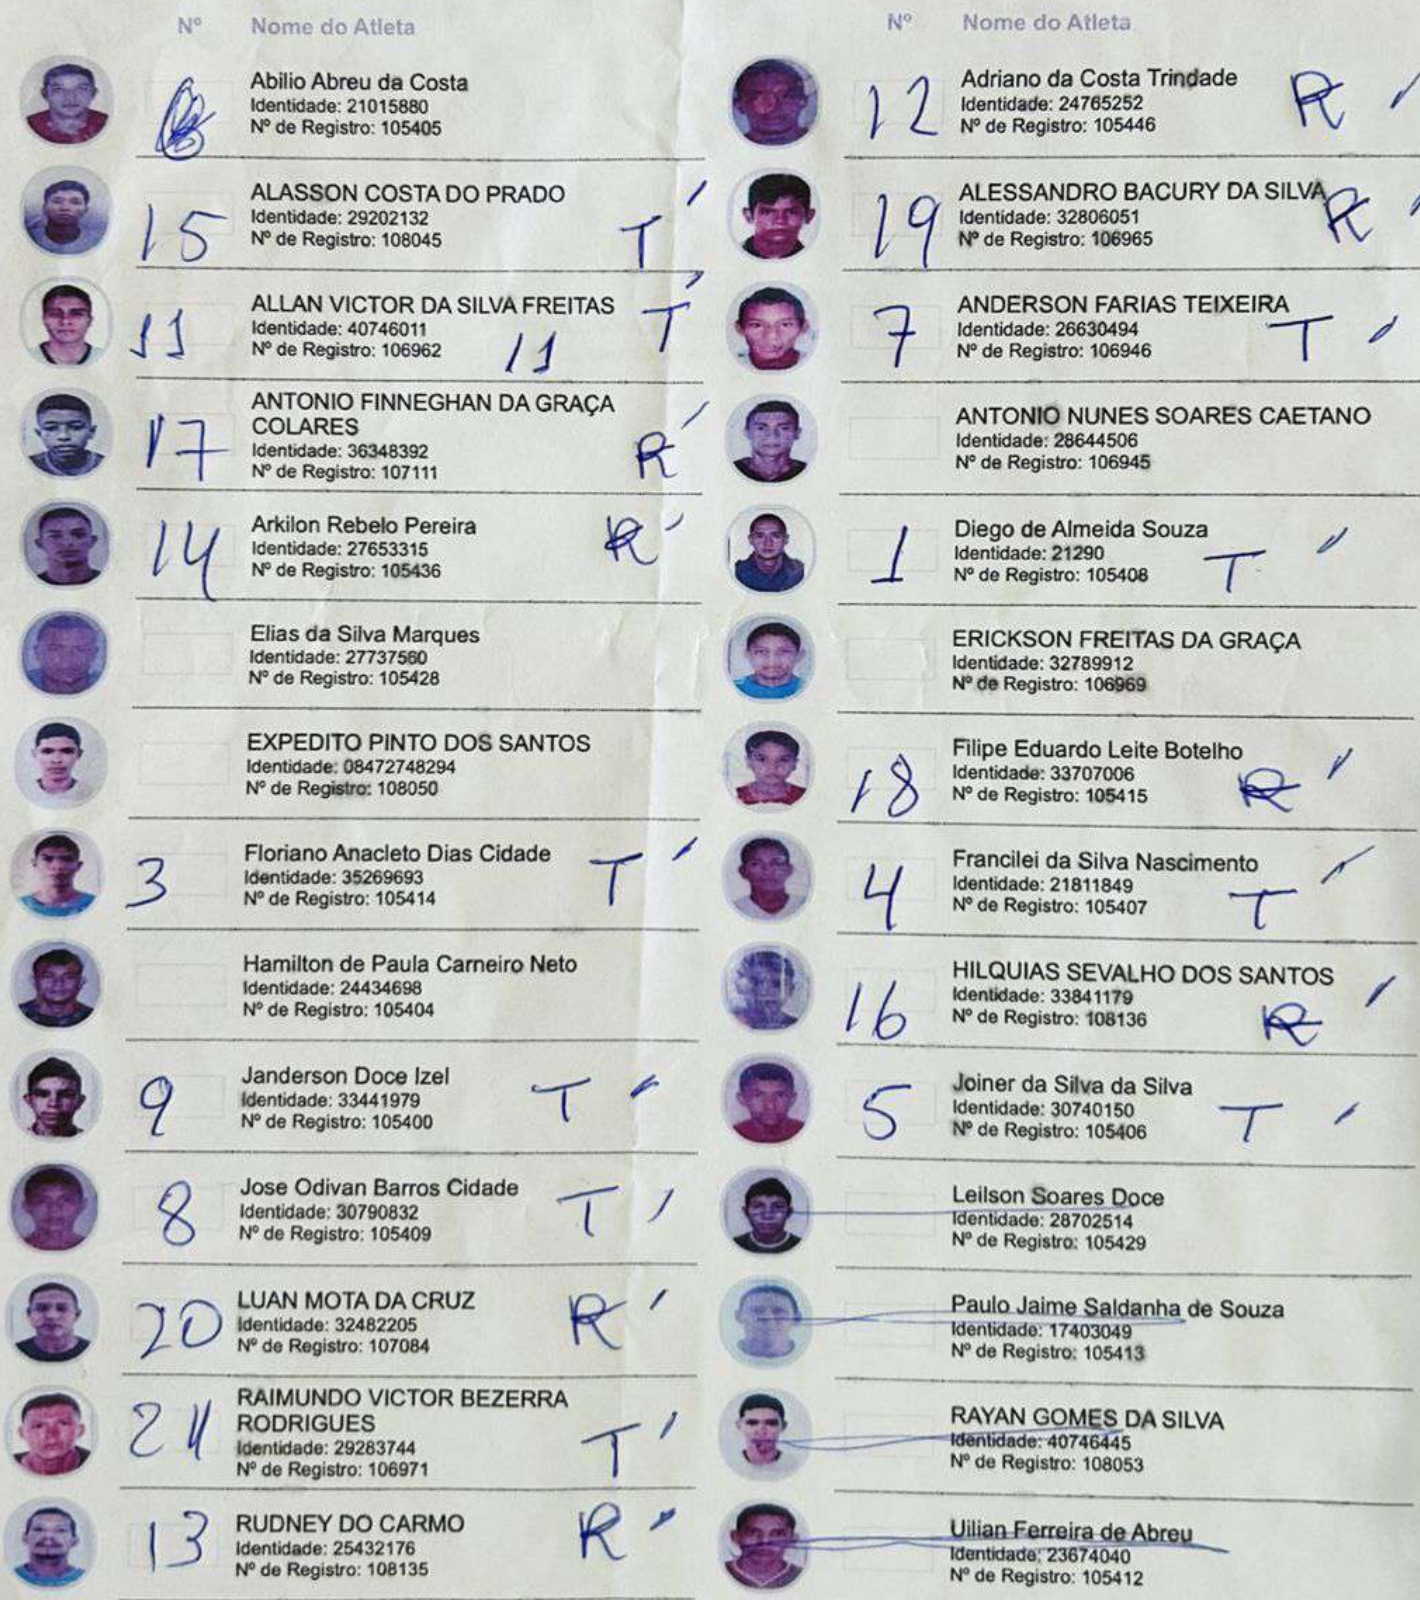 Nº Nome do Atleta
Abilio Abreu da Costa
Identidade: 21015880
Nº de Registro: 105405
15 ALASSON COSTA DO PRADO
Identidade: 29202132
Nº de Registro: 108045 T
11 ALLAN VICTOR DA SILVA FREITAS T
Identidade: 40746011
Nº de Registro: 106962 11
17 ANTONIO FINNEGHAN DA GRAÇA
COLARES
Identidade: 36348392 R
Nº de Registro: 107111
14 Arkilon Rebelo Pereira R
Identidade: 27653315
Nº de Registro: 105436
Elias da Silva Marques
Identidade: 27737560
Nº de Registro: 105428
EXPEDITO PINTO DOS SANTOS
Identidade: 08472748294
Nº de Registro: 108050
3 Floriano Anacleto Dias Cidade T
Identidade: 35269693
Nº de Registro: 105414
Hamilton de Paula Carneiro Neto
Identidade: 24434698
Nº de Registro: 105404
9 Janderson Doce Izel T
Identidade: 33441979
Nº de Registro: 105400
8 Jose Odivan Barros Cidade T
Identidade: 30790832
Nº de Registro: 105409
20 LUAN MOTA DA CRUZ R
Identidade: 32482205
Nº de Registro: 107084
RAIMUNDO VICTOR BEZERRA
RODRIGUES
Identidade: 29283744 T
Nº de Registro: 106971
13 RUDNEY DO CARMO R
Identidade: 25432176
Nº de Registro: 108135
Nº Nome do Atleta
12 Adriano da Costa Trindade R
Identidade: 24765252
Nº de Registro: 105446
19 ALESSANDRO BACURY DA SILVA R
Identidade: 32806051
Nº de Registro: 106965
7 ANDERSON FARIAS TEIXEIRA
Identidade: 26630494 T
Nº de Registro: 106946
ANTONIO NUNES SOARES CAETANO
Identidade: 28644506
Nº de Registro: 106945
1 Diego de Almeida Souza
Identidade: 21290
Nº de Registro: 105408 T
ERICKSON FREITAS DA GRAÇA
Identidade: 32789912
Nº de Registro: 106969
18 Filipe Eduardo Leite Botelho
Identidade: 33707006
Nº de Registro: 105415 R
4 Francilei da Silva Nascimento
Identidade: 21811849
Nº de Registro: 105407 T
16 HILQUIAS SEVALHO DOS SANTOS
Identidade: 33841179
Nº de Registro: 108136 R
5 Joiner da Silva da Silva
Identidade: 30740150
Nº de Registro: 105406 T
Leilson Soares Doce
Identidade: 28702514
Nº de Registro: 105429
Paulo Jaime Saldanha de Souza
Identidade: 17403049
Nº de Registro: 105413
RAYAN GOMES DA SILVA
Identidade: 40746445
Nº de Registro: 108053
Uilian Ferreira de Abreu
Identidade: 23674040
Nº de Registro: 105412